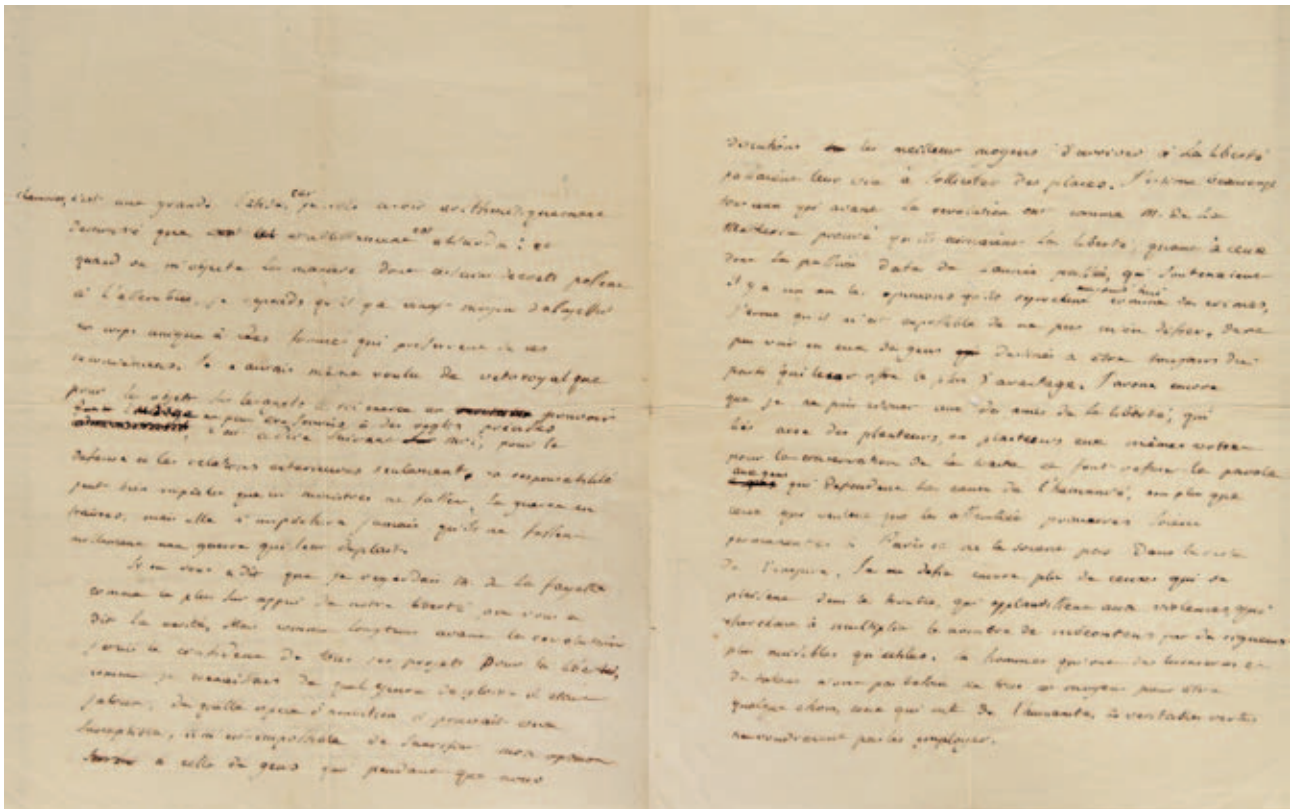 chambres, c'est une grande car je crois avoir arithmétiquement
que est absurde : et
quand on m'objecte la maniere dont certains decrets passent
à l'assemblée, je reponds qu'il y a vingt moyens d'assujettir
un corps unique à des formes qui preservent de ces
inconveniens. Je n'aurais même voulu de veto royal que
pour les objets sur lesquels le roi exerce un pouvoir
ne peut être soumis à des regles précises
c'est à dire suivant moi, pour la
defense et les relations exterieures seulement, sa responsabilité
peut bien empêcher que ses ministres ne fassent la guerre en
mais elle n'empêchera jamais qu'ils ne fassent
une guerre qui leur deplait.
Si on vous a dit que je regardais M. de la fayette
comme le plus sûr appui de notre liberté on vous a
dit la verité, comme longtems avant la revolution
j'etais le confident de tous ses projets pour la liberté,
comme je connaissais de quel genre de gloire il etait
jaloux, de quelle espece d'ambition il pouvait être
susceptible, il m'est impossible de sacrifier mon opinion
à celle de gens qui pendant que nous
discutions les meilleurs moyens d'arriver à la liberté
passaient leur vie à solliciter des places. J'estime beaucoup
tous ceux qui avant la revolution ont comme M. de la
prouvé qu'ils aimaient la liberté ; quant à ceux
dont la passion date de l'année passée, qui soutenaient
il y a un an les opinions qu'ils aujourd'hui comme des crimes,
j'avoue qu'il m'est impossible de ne pas m'en defier, de ne
pas voir en eux des gens destinés à être toujours du
parti qui leur offre le plus d'avantage. J'avoue encore
que je ne puis croire aux des amis de la liberté, qui
liés avec des planteurs, ou planteurs eux mêmes votent
pour la conservation de la traite et font refuser la parole
aux gens qui defendent la cause de l'humanité, non plus que
ceux qui veulent que les assemblées primaires soient
permanentes à Paris et ne le soient pas dans le reste
de l'empire. Je me defie encore plus de ceux qui se
plaisent dans le trouble, qui applaudissent aux violences, qui
cherchent à multiplier le nombre de mécontens par des rigueurs
plus nuisibles qu'utiles. les hommes qui ont des lumieres et
des talens n'ont pas besoin de tous ces moyens pour être
quelque chose, ceux qui ont de l'humanité, de veritables vertus
ne voudraient pas les employer.